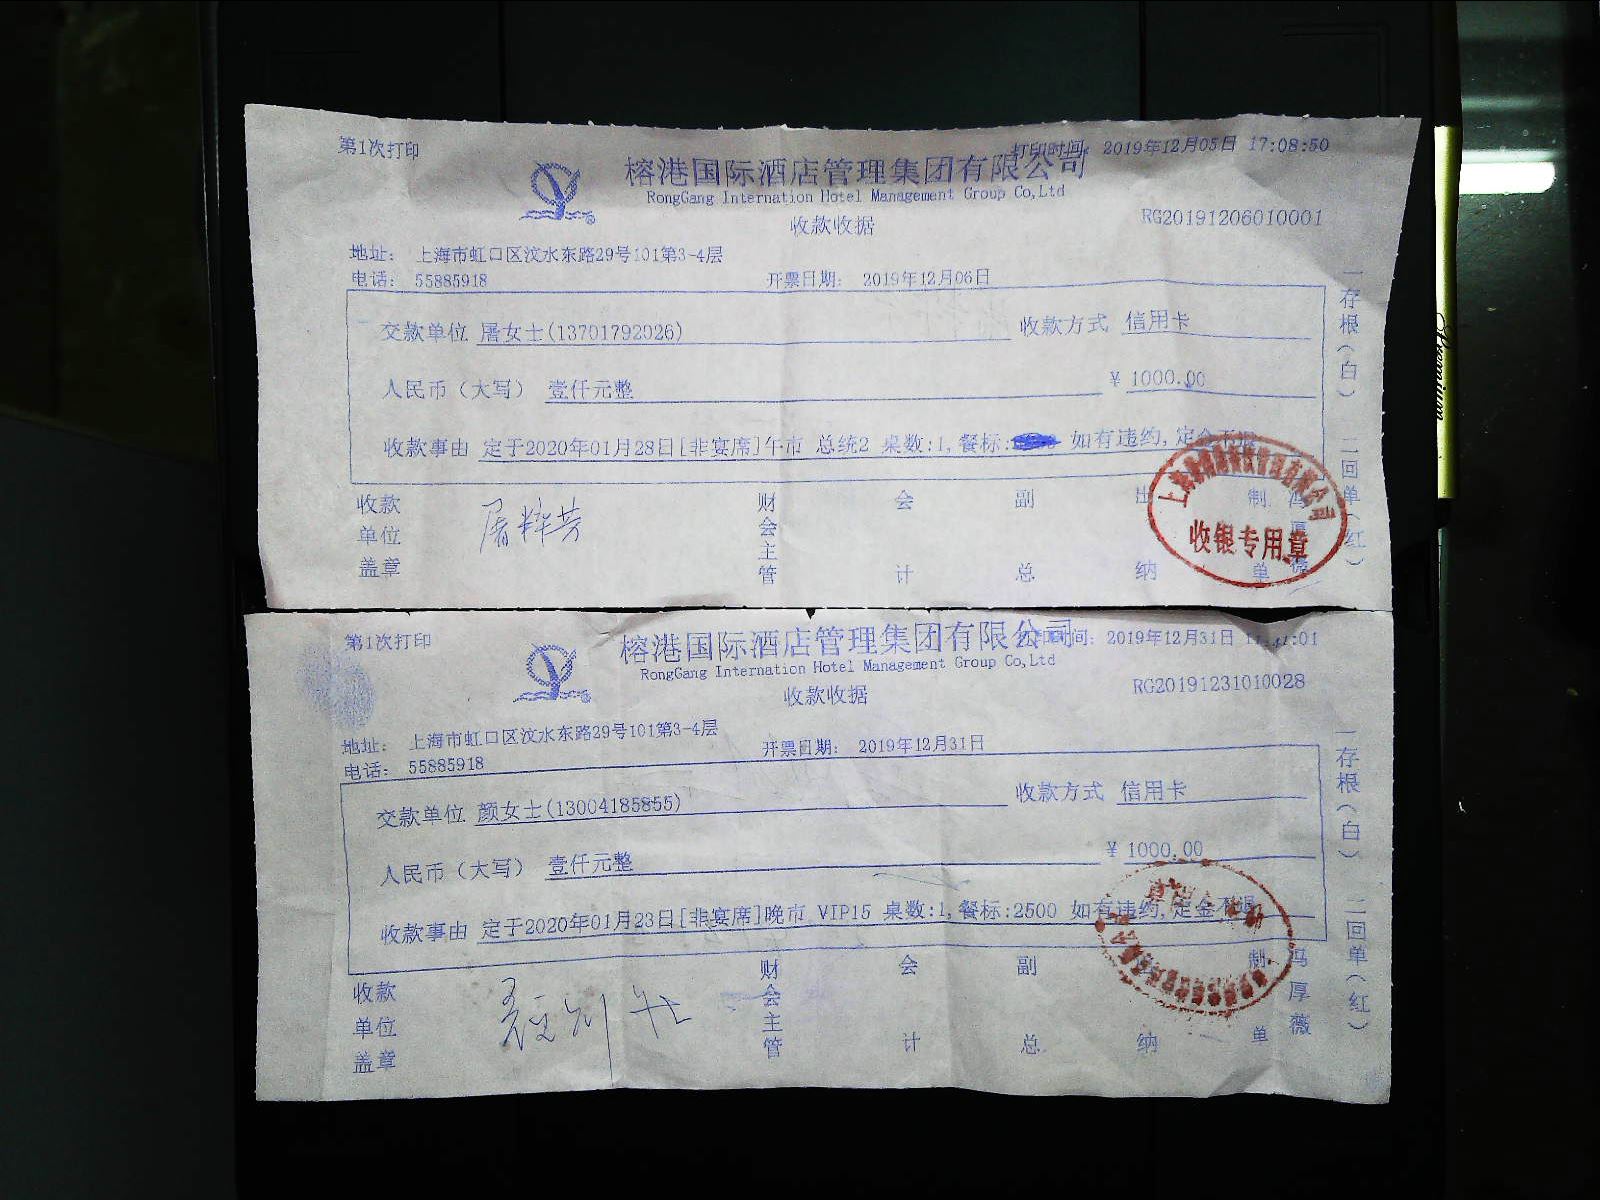 第1次打印
打印时间: 2019年12月05日 17:08:50
榕港国际酒店管理集团有限公司
RongGang Internation Hotel Management Group Co,Ltd
收款收据
RG20191206010001
地址: 上海市虹口区汶水东路29号101第3-4层
电话: 55885918
开票日期: 2019年12月06日
交款单位 屠女士(13701792026)
收款方式 信用卡
人民币(大写) 壹仟元整
¥ 1000.00
收款事由 定于2020年01月28日[非宴席]午市 总统2 桌数:1,餐标: 如有违约,定金不退
收款单位盖章
屠粹芳
财会主管
会计
副总
出纳
制单
冯厚薇
收银专用章
一存根(白) 二回单(红)
Premium
第1次打印
时间: 2019年12月31日
榕港国际酒店管理集团有限公司
RongGang Internation Hotel Management Group Co,Ltd
收款收据
RG20191231010028
地址: 上海市虹口区汶水东路29号101第3-4层
电话: 55885918
开票日期: 2019年12月31日
交款单位 颜女士(13004185855)
收款方式 信用卡
人民币(大写) 壹仟元整
¥ 1000.00
收款事由 定于2020年01月23日[非宴席]晚市 VIP15 桌数:1,餐标:2500 如有违约,定金不退
收款单位盖章
财会主管
会计
副总
纳
制单
冯厚薇
一存根(白) 二回单(红)